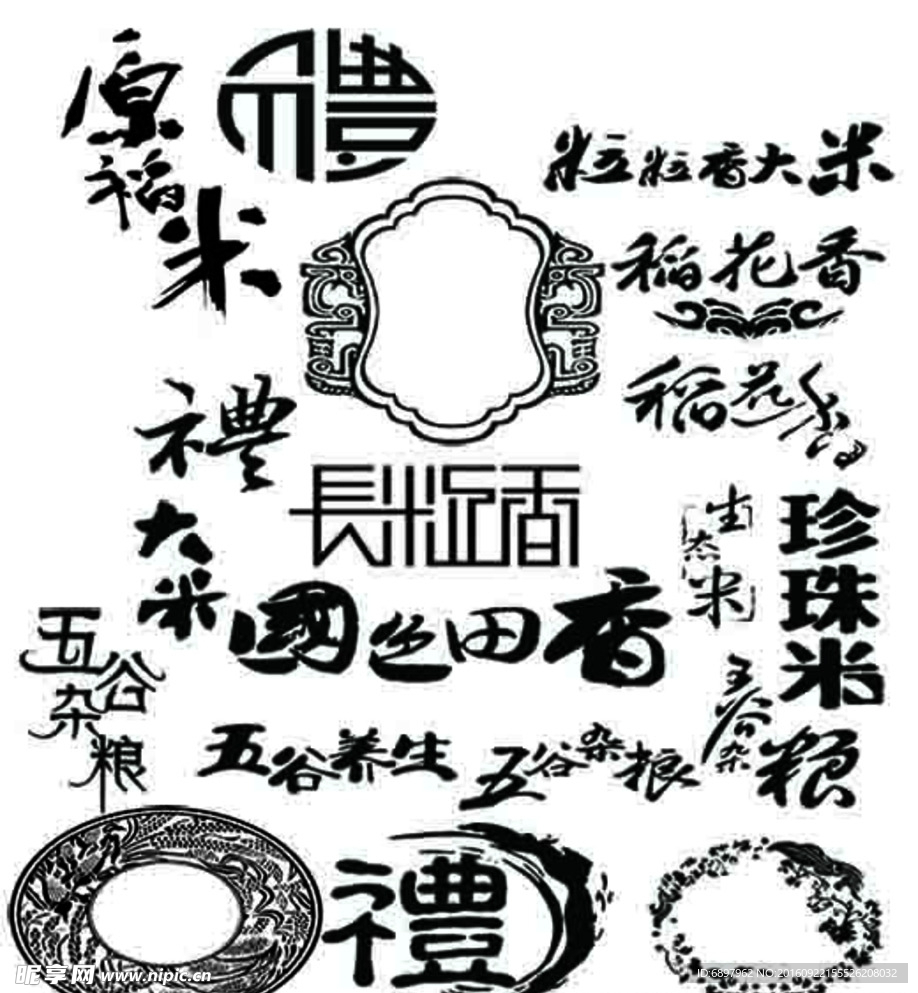 原稻米
禮
粒粒香大米
稻花香
稻花香
禮
大米
長粒香
生态米
珍珠米
國色田香
五谷杂粮
五谷养生
五谷杂粮
五谷杂粮
禮
昵享网 www.nipic.cn
ID:6897962 NO:20160922155526208032